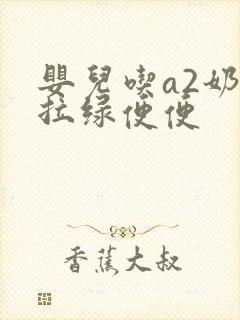 嬰兒喫a2奶
拉绿便便
香蕉大叔